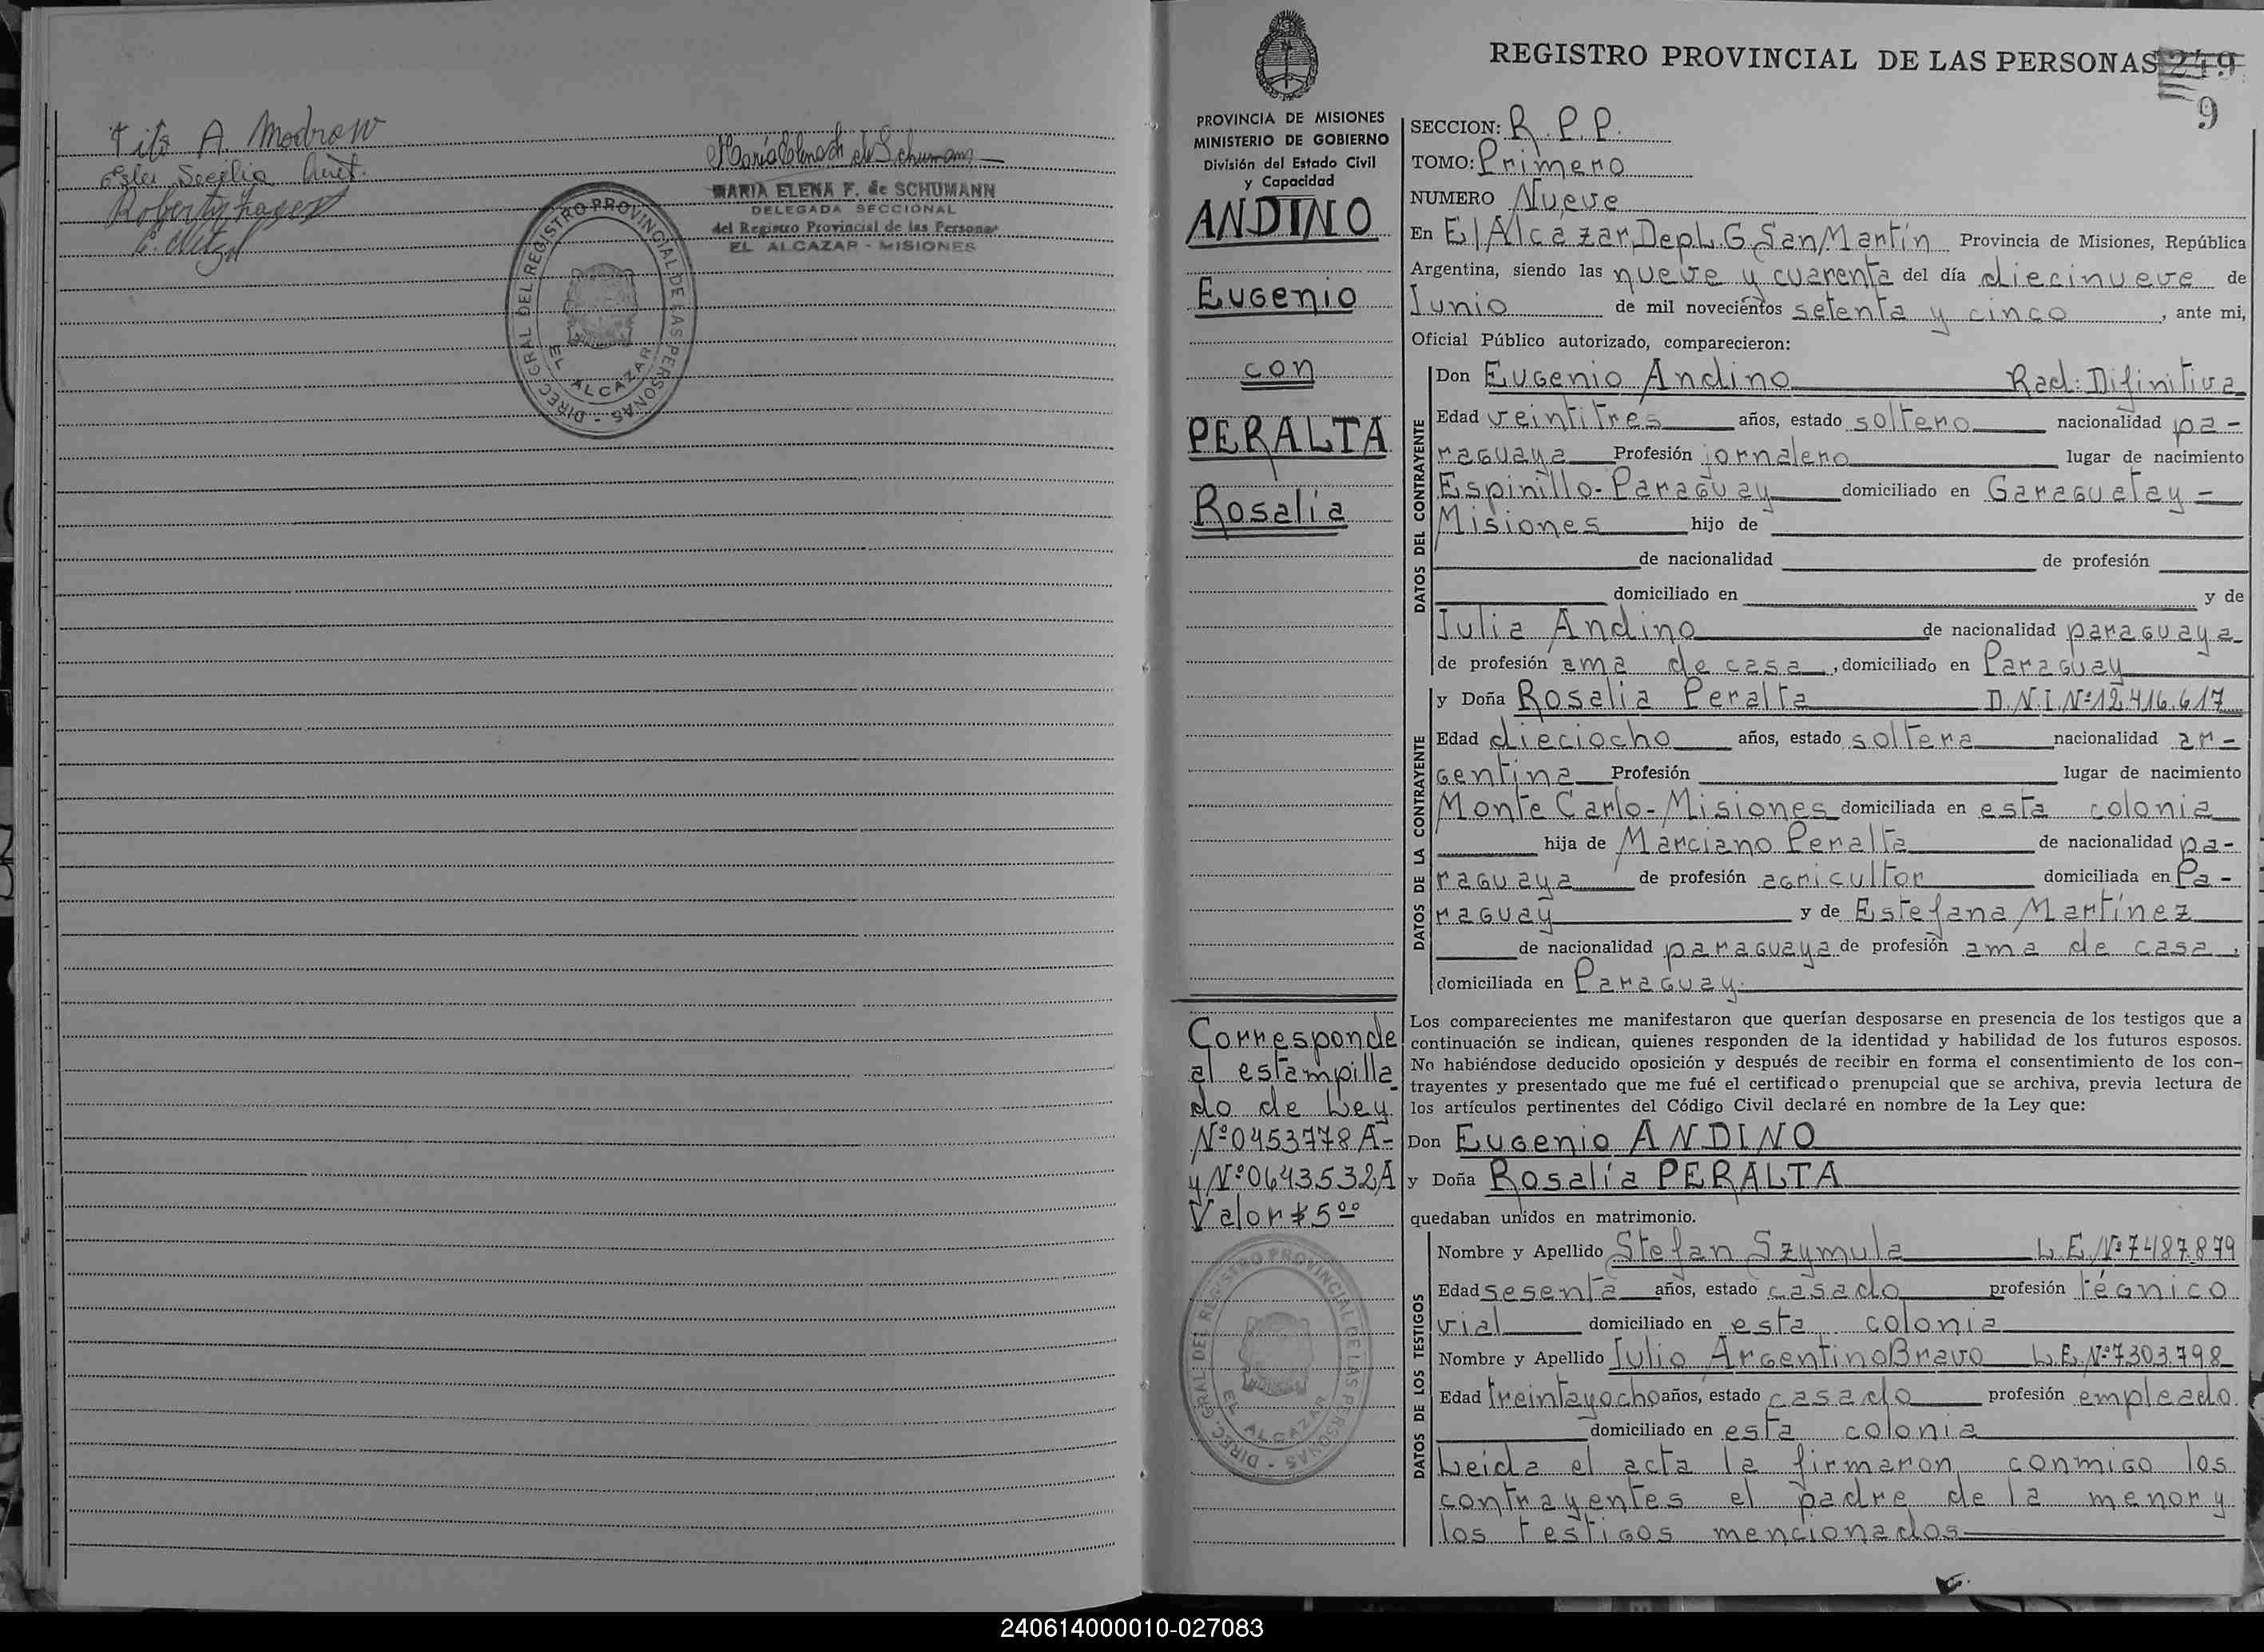 Tito A. Modrow
MARIA ELENA F. de SCHUMANN
DELEGADA SECCIONAL
del Registro Provincial de las Personas
EL ALCAZAR - MISIONES
DIREC. GRAL DEL REGISTRO PROVINCIAL DE LAS PERSONAS -
EL ALCAZAR
REGISTRO PROVINCIAL DE LAS PERSONAS 249
9
PROVINCIA DE MISIONES
MINISTERIO DE GOBIERNO
División del Estado Civil
y Capacidad
ANDINO
Eugenio
con
PERALTA
Rosalia
Corresponde
al estampilla
do de Ley
Nº 0453778 A-
y Nº 0643532 A
Valor $ 5 00
DIREC. GRAL DEL REGISTRO PROVINCIAL DE LAS PERSONAS -
EL ALCAZAR
SECCION: R.P.P.
TOMO: Primero
NUMERO Nueve
En El Alcazar, Dep L.G. San Martín Provincia de Misiones, República
Argentina, siendo las nueve y cuarenta del día diecinueve de
Junio de mil novecientos setenta y cinco, ante mi,
Oficial Público autorizado, comparecieron:
DATOS DEL CONTRAYENTE
Don Eugenio Andino Rad: Difinitiva
Edad veintitres años, estado soltero nacionalidad pa-
raguaya Profesión jornalero lugar de nacimiento
Espinillo-Paraguay domiciliado en Garaguatay -
Misiones hijo de
de nacionalidad de profesión
domiciliado en y de
Julia Andino de nacionalidad paraguaya
de profesión ama de casa, domiciliado en Paraguay
DATOS DE LA CONTRAYENTE
y Doña Rosalia Peralta D.N.I. Nº 12.416.617
Edad dieciocho años, estado soltera nacionalidad ar-
gentina Profesión lugar de nacimiento
Monte Carlo-Misiones domiciliada en esta colonia
hija de Marciano Peralta de nacionalidad pa-
raguaya de profesión agricultor domiciliada en Pa-
raguay y de Estefana Martínez
de nacionalidad paraguaya de profesión ama de casa,
domiciliada en Paraguay.
Los comparecientes me manifestaron que querían desposarse en presencia de los testigos que a
continuación se indican, quienes responden de la identidad y habilidad de los futuros esposos.
No habiéndose deducido oposición y después de recibir en forma el consentimiento de los con-
trayentes y presentado que me fué el certificado prenupcial que se archiva, previa lectura de
los artículos pertinentes del Código Civil declaré en nombre de la Ley que:
Don Eugenio ANDINO
y Doña Rosalía PERALTA
quedaban unidos en matrimonio.
DATOS DE LOS TESTIGOS
Nombre y Apellido Stefan Szymula L.E. Nº 7487.879
Edad sesenta años, estado casado profesión técnico
vial domiciliado en esta colonia
Nombre y Apellido Julio Argentino Bravo L.E. Nº 7303.798
Edad treintayocho años, estado casado profesión empleado
domiciliado en esta colonia
Leida el acta la firmaron conmigo los
contrayentes el padre de la menor y
los testigos mencionados
240614000010-027083